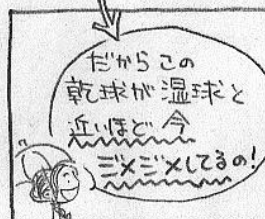 だからこの
乾球が湿球と
近いほど、今
ジメジメしてるの!